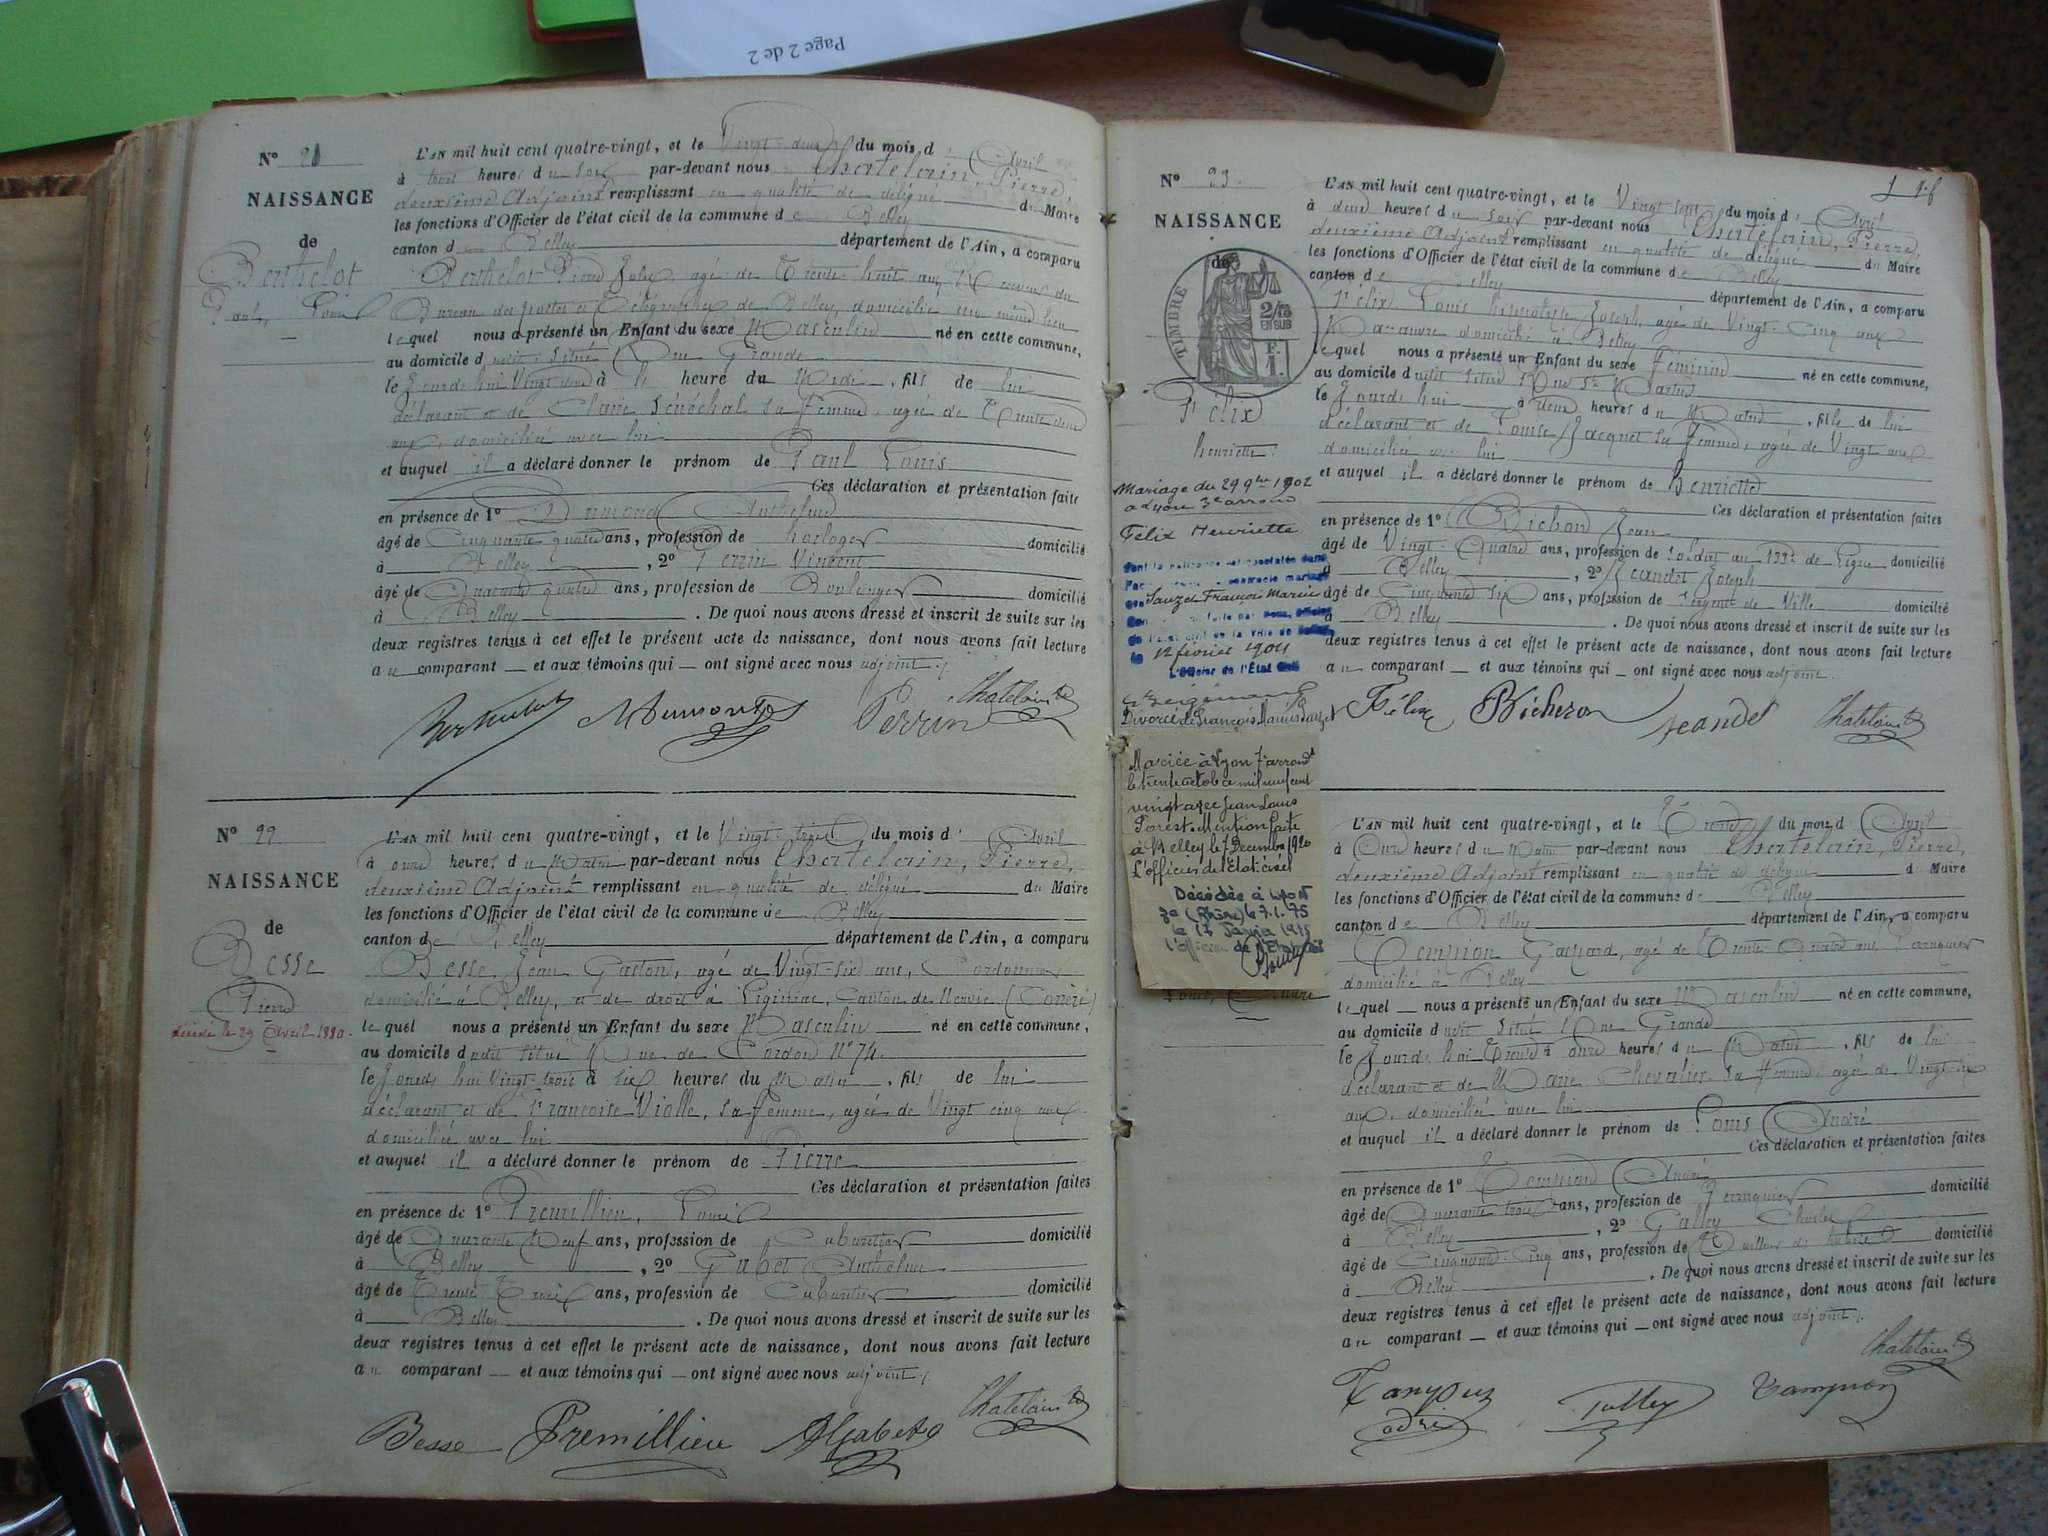 Page 2 de 2
N° 21
NAISSANCE
de
Berthelot
Paul, Louis
L'AN mil huit cent quatre-vingt, et le Vingt-deux du mois d' Avril
à trois heures du soir par-devant nous Chatelain, Pierre,
deuxième Adjoint remplissant en qualité de délégué du Maire
les fonctions d'Officier de l'état civil de la commune de Belley
canton de Belley département de l'Ain, a comparu
Berthelot Pierre Jules, agé de Trente-huit ans, Receveur du
Bureau des postes et Télégraphes de Belley, domicilié au même lieu
lequel nous a présenté un Enfant du sexe Masculin né en cette commune,
au domicile dudit situé Rue Grande
le Jourdehui Vingt deux à heure du , fils de lui
déclarant et de Claire Sénéchal sa femme, agée de Trente deux
ans, domiciliée avec lui
et auquel il a déclaré donner le prénom de Paul Louis
Ces déclaration et présentation faites
en présence de 1° Dumond Anthelme
âgé de Cinquante quatre ans, profession de horloger domicilié
à Belley , 2° Perrin Vincent
âgé de Quarante quatre ans, profession de Boulanger domicilié
à Belley . De quoi nous avons dressé et inscrit de suite sur les
deux registres tenus à cet effet le présent acte de naissance, dont nous avons fait lecture
au comparant — et aux témoins qui — ont signé avec nous adjoint ./.
Berthelot Dumont Perrin Chatelain
N° 22
NAISSANCE
de
Besse
Pierre
décédé le 29 Avril 1880.
L'AN mil huit cent quatre-vingt, et le Vingt-trois du mois d' Avril
à onze heures du Matin par-devant nous Chatelain, Pierre,
deuxième Adjoint remplissant en qualité de délégué du Maire
les fonctions d'Officier de l'état civil de la commune de Belley
canton de Belley département de l'Ain, a comparu
Besse Jean Gaston, agé de Vingt-six ans, Cordonnier
domicilié à Belley, et de droit à Liginiac, Canton de Neuvic (Corrèze)
lequel nous a présenté un Enfant du sexe Masculin né en cette commune,
au domicile dudit situé Rue de Cordon N° 74.
le Jourdehui Vingt-trois à six heures du Matin , fils de lui
déclarant et de Françoise Violle, sa femme, agée de Vingt cinq ans
domiciliée avec lui
et auquel il a déclaré donner le prénom de Pierre
Ces déclaration et présentation faites
en présence de 1° Premillieu, Louis
âgé de Quarante Neuf ans, profession de Cabaretier domicilié
à Belley , 2° Gabet Anthelme
âgé de Trente Trois ans, profession de Cabaretier domicilié
à Belley . De quoi nous avons dressé et inscrit de suite sur les
deux registres tenus à cet effet le présent acte de naissance, dont nous avons fait lecture
au comparant — et aux témoins qui — ont signé avec nous adjoint ./.
Besse Premillieu A Gabet Chatelain
N° 23.
NAISSANCE
de
TIMBRE
2/10
EN SUS
F.
1.
Félix
henriette
Mariage du 29 9bre 1902
a Lyon 3e arrond
Félix Henriette
dont la naissance est constatée dans
contracté mariage
Sauzet François Marius
faite par nous, Officier
de l'état civil de la ville de Belley
le 12 février 1904
L'Officier de l'État Civil
Divorcée de François Marius Sauzet
Mariée à Lyon 7e arrondt
le trente octobre mil neuf cent
vingt avec Jean Louis
Forest. Mention faite
à Belley le 7 Decembre 1920
L'officier de l'état civil
Décédée à Lyon
3e (Rhône) le 7.1.75
le 17 Janvier 1975
l'officier de l'Etat civil
Louis, André
L'AN mil huit cent quatre-vingt, et le Vingt sept du mois d' Avril
à deux heures du soir par-devant nous Chatelain, Pierre,
deuxième Adjoint remplissant en qualité de délégué du Maire
les fonctions d'Officier de l'état civil de la commune de Belley
canton de Belley département de l'Ain, a comparu
Félix Louis hippolyte Joseph, agé de Vingt-Cinq ans
Manœuvre domicilié à Belley
lequel nous a présenté un Enfant du sexe Féminin né en cette commune,
au domicile dudit situé Rue St Martin
le Jourdehui à deux heures du Matin , fille de lui
déclarant et de Louise Jacquet sa femme, agée de Vingt ans
domiciliée avec lui
et auquel il a déclaré donner le prénom de Henriette
Ces déclaration et présentation faites
en présence de 1° Bichon Jean
âgé de Vingt-Quatre ans, profession de Soldat au 133e de Ligne domicilié
à Belley , 2° Jeandet Joseph
âgé de Cinquante six ans, profession de Sergent de Ville domicilié
à Belley . De quoi nous avons dressé et inscrit de suite sur les
deux registres tenus à cet effet le présent acte de naissance, dont nous avons fait lecture
au comparant — et aux témoins qui — ont signé avec nous adjoint.
Félix Bicheron Jeandet Chatelain
L'AN mil huit cent quatre-vingt, et le Trente du mois d' Avril
à Onze heures du Matin par-devant nous Chatelain, Pierre,
deuxième Adjoint remplissant en qualité de délégué du Maire
les fonctions d'Officier de l'état civil de la commune de Belley
canton de Belley département de l'Ain, a comparu
Gaspard, agé de Trente-Quatre ans, Perruquier
domicilié à Belley
lequel — nous a présenté un Enfant du sexe Masculin né en cette commune,
au domicile dudit situé Rue Grande
le Jourdehui Trente à onze heures du Matin , fils de lui
déclarant et de Marie Chevalier sa femme agée de Vingt-six
ans, domiciliée avec lui
et auquel il a déclaré donner le prénom de Louis André
Ces déclaration et présentation faites
en présence de 1° André
âgé de Quarante trois ans, profession de Perruquier domicilié
à Belley , 2° Galley Charles
âgé de Cinquante-Cinq ans, profession de Tailleur de habits domicilié
à Belley . De quoi nous avons dressé et inscrit de suite sur les
deux registres tenus à cet effet le présent acte de naissance, dont nous avons fait lecture
au comparant — et aux témoins qui — ont signé avec nous adjoint ./.
Chatelain